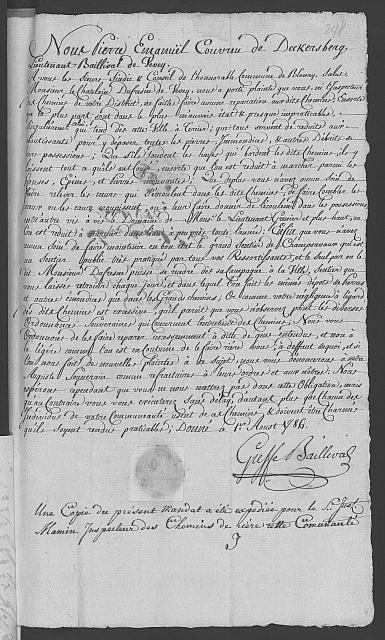 Nous Pierre Emanuël Couvreu de Deckersberg,
Lieutenant Baillival de Vevey.
A vous les Sieurs Sindic & Conseil de l'honorable Commune de Blonay, Salut.
Monsieur le Chatelain Dufresne de Vevey, nous a porté plainte que vous ni l'Inspecteur
des chemins de votre District, ne faites faire aucune reparation aux dits Chemins, Ensorte
la plus part sont dans le plus mauvais état & presque impraticable.
qui tend dès cette Ville à que tous servent de reduits aux
pour y déposer toutes les pierres, Immondices, & autres Debris
possessions; Que de les hayes qui bordent les dits Chemins,
tout à ensorte que l'on est reduit à marcher parmi les
Epines & pierres Que vous n'avez aucun soin de
faire relever les murs qui s'ecroulent dans les dits chemins, de faire combler les
ou les eaux ou à leur faire donner de l'ecoulement dans les possessions
entr'autre vis à vis le Domaine de Mons.r le Lieutenant Grenier et plus haut, ou
l'on est reduit à marcher dans l'eau à peu près toute l'année; Enfin que vous n'avez
aucun Soin de faire maintenir en bon état le grand Sentier de qui est
un Sentier public très pratiqué par tous vos Ressortissants, et le seul par ou le
dit Monsieur Dufresne puisse se rendre dès sa campagne à la Ville; Sentier que
vous laissés retrecir chaque jour, et dans lequel l'on fait les mêmes dépots de pierres
et autres immondices que dans les Grands chemins; Et comme votre négligence à l'égard
des dits Chemins est excessive, qu'il parait que vous n'observez point les diverses
Ordonnances Souveraines qui concernent l'entretien des Chemins; Nous vous
Ordonnons de les faire réparer incessamment à dite de gens entendus, et non à
la légère comme l'on est en coutume de le faire à deffaut de quoi, et si
l'on nous fait de nouvelles plaintes à ce Sujet, nous vous dénoncerons à notre
Auguste Souverain comme refractaires à leurs ordres et aux nôtres; Nous
espérons cependant que vous ne nous mettrez pas dans cette Obligation; mais
qu'au contraire vous vous exécuterez sans délay, d'autant plus que chacun des
Individus de votre Communauté usent de ces Chemins, & doivent être Charmés
qu'ils soyent rendus pratiables; Donné ce 1.er Aoust 1786.
Greffe Baillival
Une Copie du présent mandat a été expédiée pour le S.r Just.
Mamin Inspecteur des Chemins de rière cette Comunauté